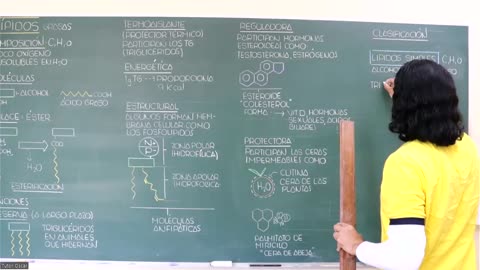 LÍPIDOS GRASAS
MPOSICIÓN: C,H,O
OCO OXÍGENO
NSOLUBLES EN H₂O
OLÉCULAS
ALCOHOL
COOH
ÁCIDO GRASO
ACE: ÉSTER
H₂O
ESTERIFICACIÓN
NCIONES
ESERVA (A LARGO PLAZO)
TRIGLICÉRIDOS
EN ANIMALES
QUE HIBERNAN
TERMOAISLANTE
(PROTECTOR TÉRMICO)
PARTICIPAN LOS TG
(TRIGLICÉRIDOS)
ENERGÉTICA
TG → PROPORCIONA
9 Kcal
ESTRUCTURAL
ALGUNOS FORMAN MEM-
BRANA CELULAR COMO
LOS FOSFOLÍPIDOS
ZONA POLAR
(HIDROFÍLICA)
ZONA APOLAR
(HIDROFÓBICA)
MOLÉCULAS
ANFIPÁTICAS
REGULADORA
PARTICIPAN HORMONAS
ESTEROIDEAS COMO:
TESTOSTERONA, ESTRÓGENOS
ESTEROIDE
"COLESTEROL"
FORMA → VIT D, HORMONAS
SEXUALES, ÁCIDOS
BILIARES
PROTECTORA
PARTICIPAN LAS CERAS
IMPERMEABLES COMO
CUTINA
CERA DE LAS
PLANTAS
H₂O
PALMITATO DE
MIRICILO
"CERA DE ABEJA"
CLASIFICACIÓN
LÍPIDOS SIMPLES C,H,O
ALCOHO
TRI
Tutor Oscar